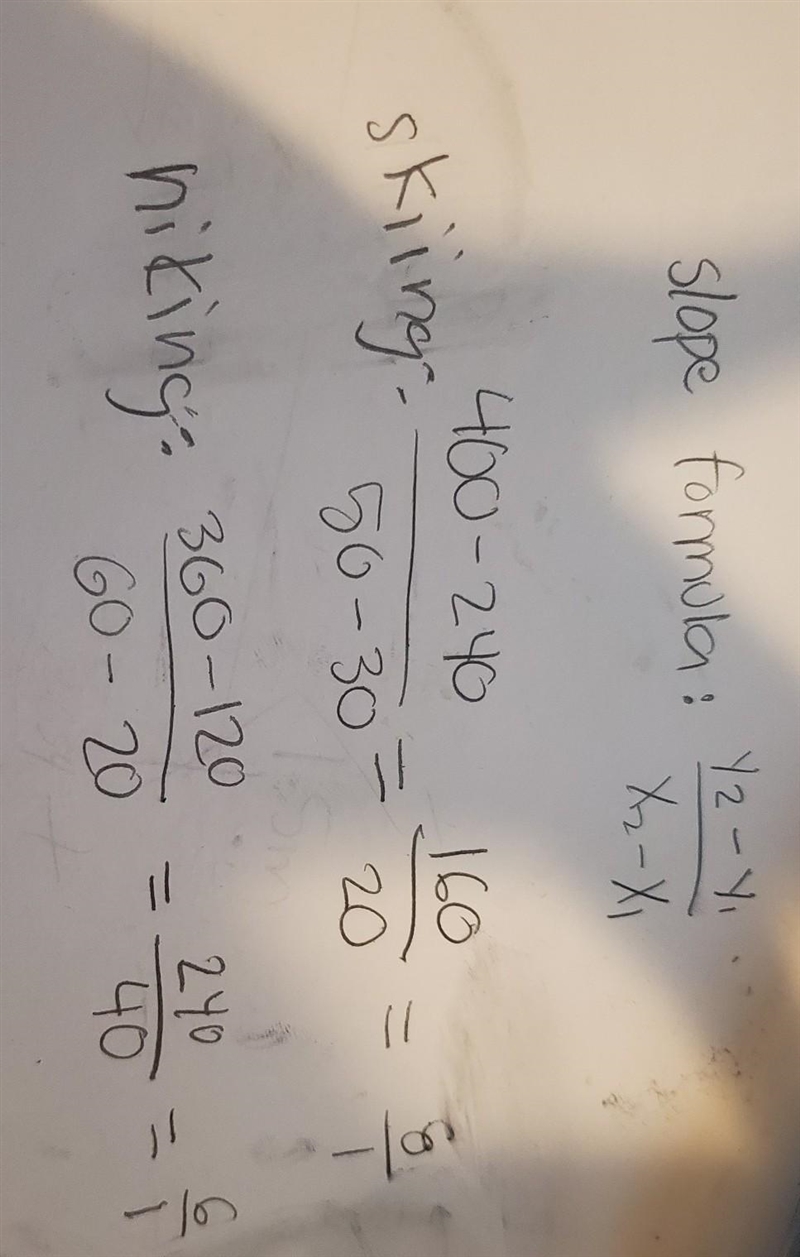 slope formula: y₂ - y₁ / x₂ - x₁
skiing: 400 - 240 / 50 - 30 = 160 / 20 = 8 / 1
hiking: 360 - 120 / 60 - 20 = 240 / 40 = 6 / 1